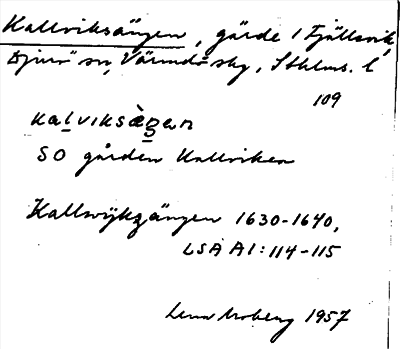 Kallviksängen, gärde i Fjällsvik,
Djurö sn, Värmdö sky, Sthlms. l
109
kalviksὲŋen
SO gården Kallviken
Kallwijkzängen 1630-1640,
LSA A1:114-115
Lena Moberg 1957